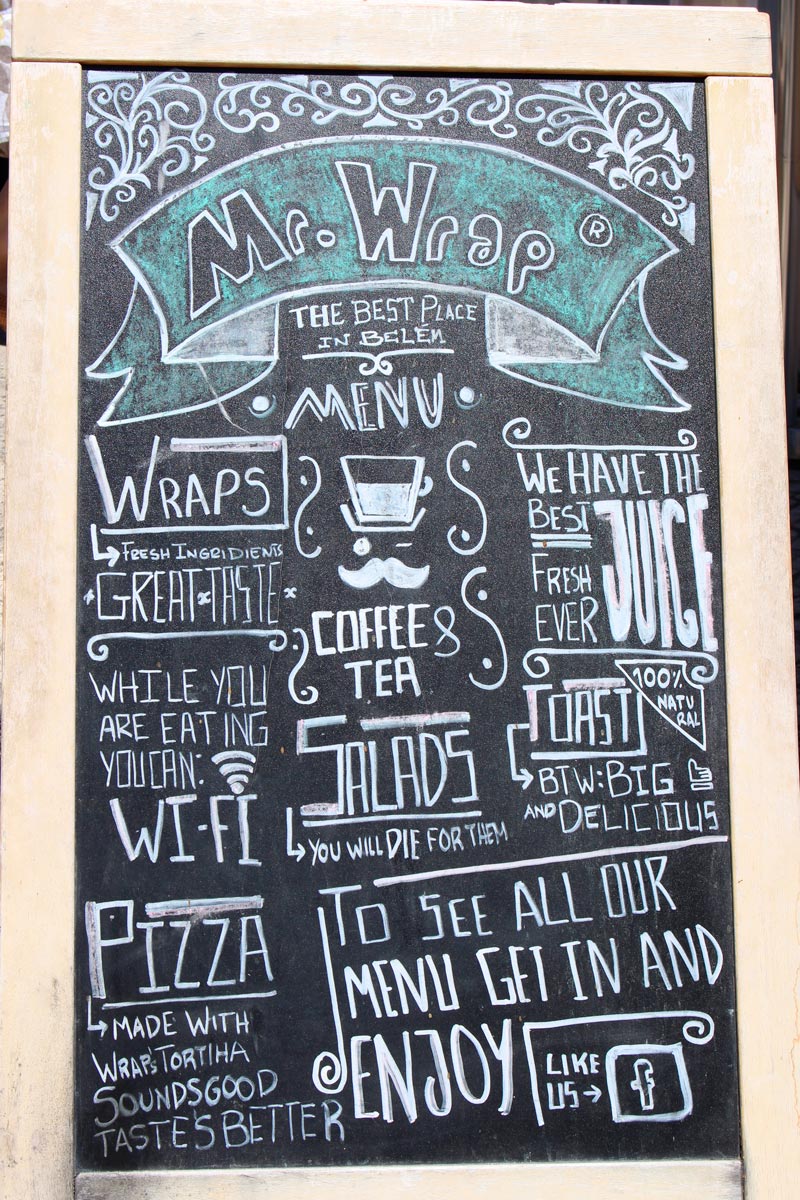 Mr. Wrap ®
THE BEST PLACE
IN BELÉM
MENU
WRAPS
FRESH INGRIDIENTS
GREAT TASTE
WHILE YOU
ARE EATING
YOU CAN:
WI-FI
PIZZA
MADE WITH
WRAPS TORTIHA
SOUNDSGOOD
TASTE'S BETTER
COFFEE &
TEA
SALADS
YOU WILL DIE FOR THEM
WE HAVE THE
BEST JUICE
FRESH
EVER
TOAST
100%
NATU
RAL
BTW: BIG
AND DELICIOUS
TO SEE ALL OUR
MENU GET IN AND
ENJOY
LIKE
US → f